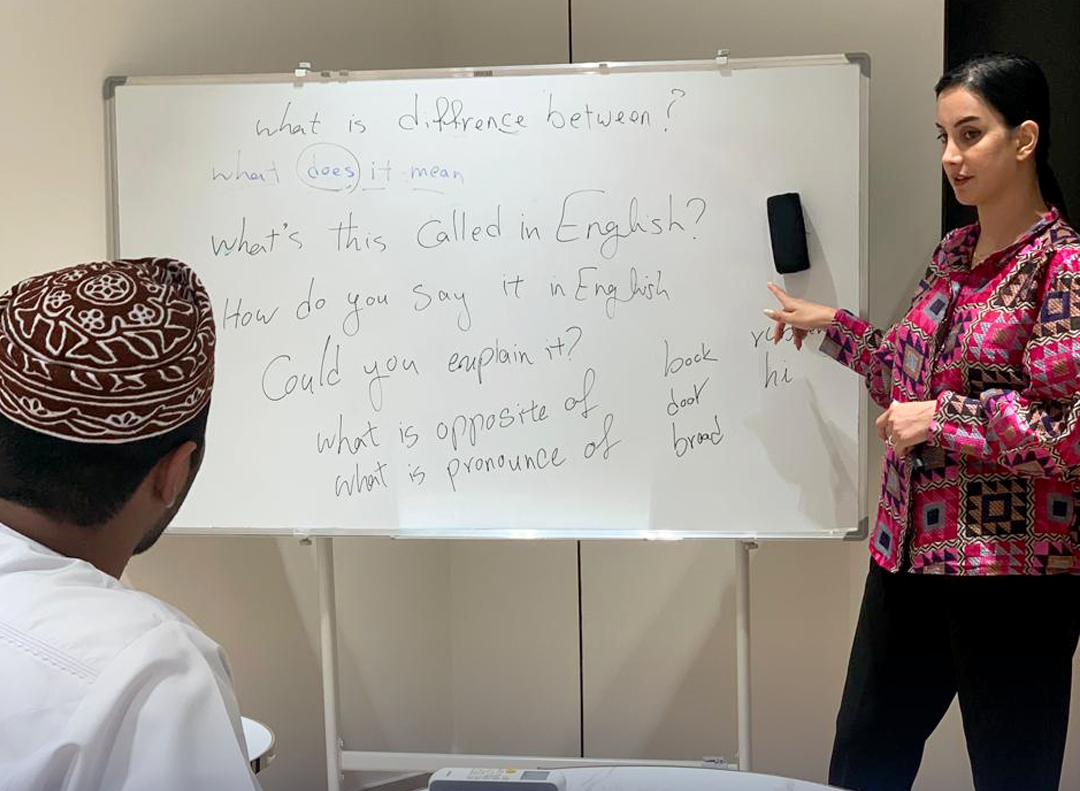 what is diffrence between?
what does it mean
what's this called in English?
How do you say it in English
Could you emplain it?
what is opposite of
what is pronounce of
book
door
broad
hi